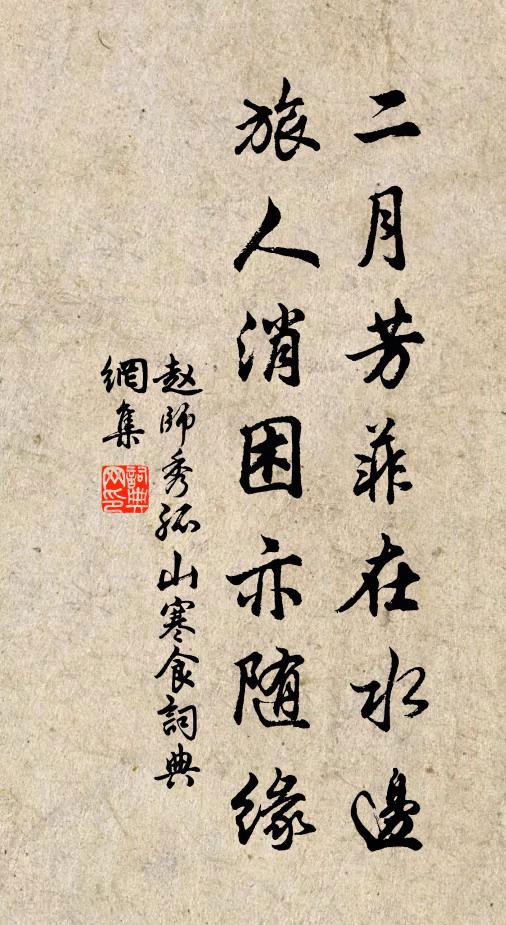 二月芳菲在水邊
旅人消困亦随緣
赵師秀孤山寒食詞典
網集
詞典
网印